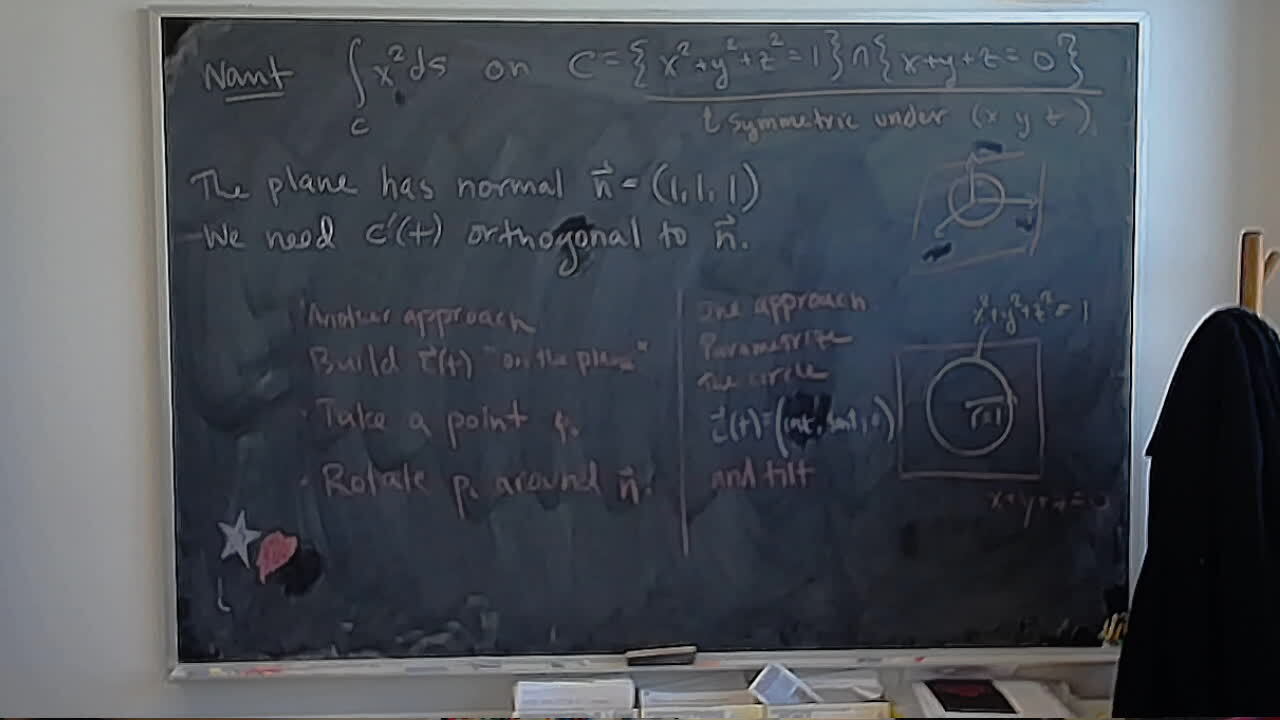 Want ∫_C x² ds on C = { x² + y² + z² = 1 } ∩ { x + y + z = 0 }
symmetric under (x y z)
The plane has normal n⃗ = (1, 1, 1)
We need c'(t) orthogonal to n⃗.
Another approach
Build c⃗(t) "on the plane"
· Take a point p₀
· Rotate p₀ around n⃗.
One approach
Parametrize
the circle
c⃗(t) = (cos t, sin t, 0)
and tilt
x² + y² + z² = 1
r=1
x + y + z = 0